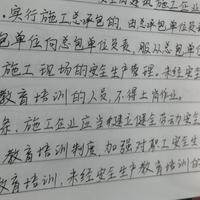 实行施工总承包的,由总承包单位负
包单位向总包单位负责,服从总包单位
施工现场的安全生产管理,未经安全
教育培训的人员,不得上岗作业。
条,施工企业应当建立健全劳动安全
教育培训制度,加强对职工安全生
教育培训,未经安全生产教育培训的